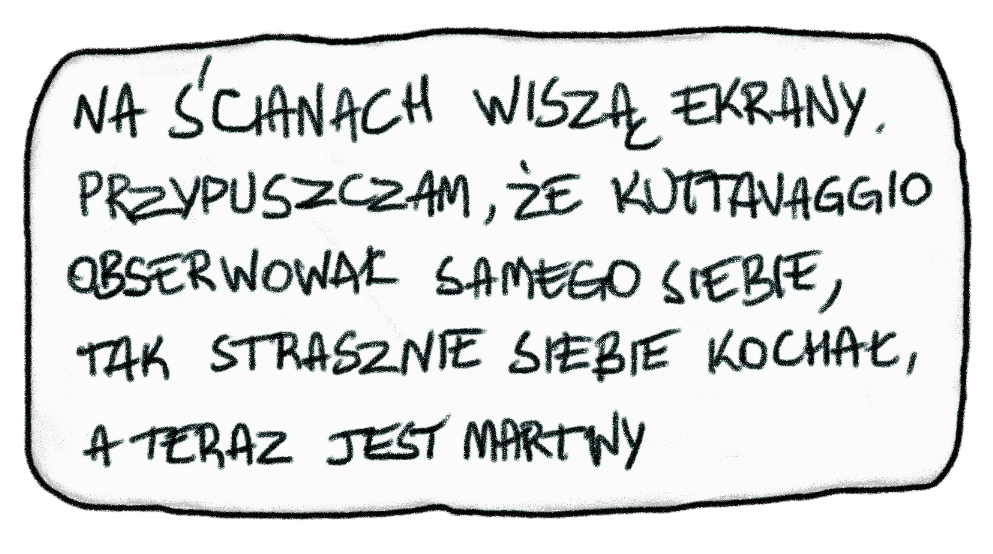 NA ŚCIANACH WISZĄ EKRANY.
PRZYPUSZCZAM, ŻE KUTTAVAGGIO
OBSERWOWAŁ SAMEGO SIEBIE,
TAK STRASZNIE SIEBIE KOCHAŁ,
A TERAZ JEST MARTWY